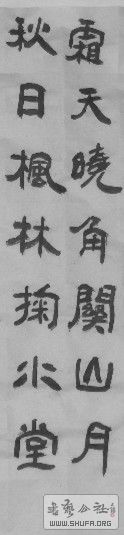 霜天曉角關山月
秋日楓林掬水堂
书艺公社
WWW.SHUFA.ORG